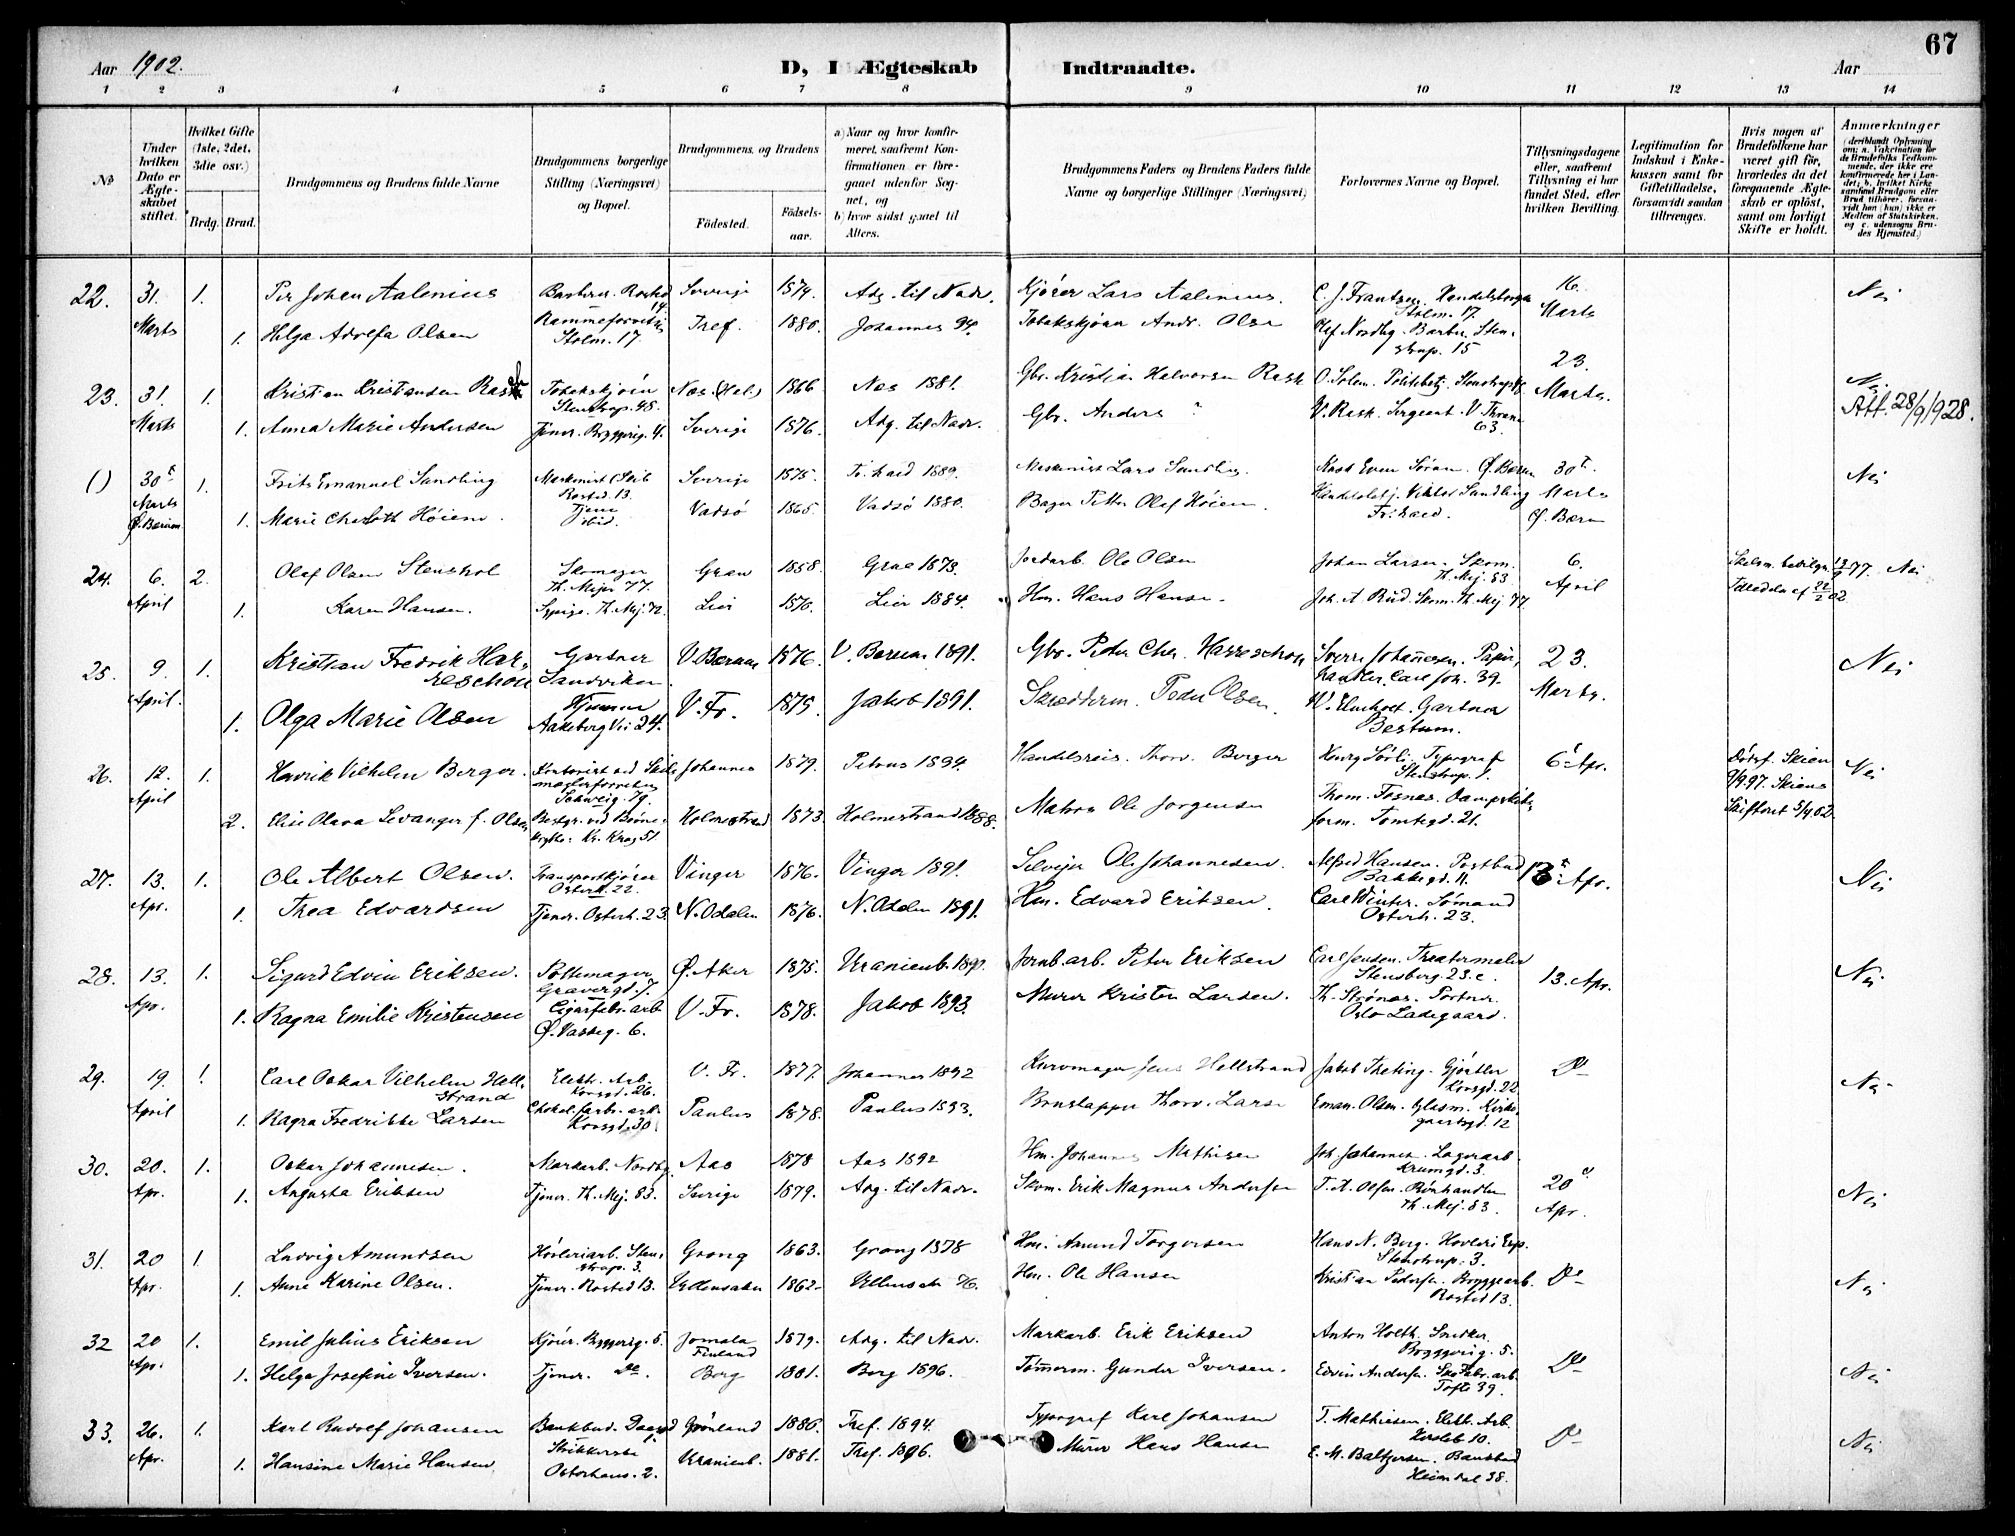 67
Aar 1902.
D, I Ægteskab Indtraadte.
Aar
1 2 3 4 5 6 7 8 9 10 11 12 13 14
No
Under hvilken Dato er Ægteskabet stiftet.
Hvilket Gifte (1ste, 2det, 3die osv.)
Brdg. Brud.
Brudgommens og Brudens fulde Navne
Brudgommens borgerlige Stilling (Næringsvei) og Bopæl.
Brudgommens og Brudens
Födested. Födsels-aar.
a) Naar og hvor konfirmeret, saafremt Konfirmationen er foregaaet udenfor Sognet, og
b) hvor sidst gaaet til Alters.
Brudgommens Faders og Brudens Faders fulde Navne og borgerlige Stillinger (Næringsvei)
Forlovernes Navne og Bopæl.
Tillysningsdagene eller, saafremt Tillysning ei har fundet Sted, efter hvilken Bevilling.
Legitimation for Indskud i Enkekassen samt for Giftetilladelse, forsaavidt saadan tiltrænges.
Hvis nogen af Brudefolkene har været gift för, hvorledes da det foregaaende Ægteskab er oplöst, samt om lovligt Skifte er holdt.
Anmærkninger
22. 31. Marts 1. Per Johan Aalenius Sverige 1874. Adg. til Nadv. Kjører Lars Aalenius. C. J. Frantzen. Stolm. 17. 16. Marts Nei
1. Helga Adolfa Olsen Stolm. 17. Tref. 1880. Johannes 94. Andr. Olsen Olef Nordby. Barber. Stenstrup. 15
23. 31. Marts 1. Kristian Kristiansen Rask Tobakskjører Stenstrup. 48. Nes (Hed.) 1866 Nes 1881. Gbr. Kristian Halvorsen Rask O. Solem. Politibetj. 23. Marts. Nei.
Att. 28/9/928.
1. Anna Marie Andersen Tjener. Bryggerig. 4. Sverige 1876. Adg. til Nadv. Gbr. Anders ? V. Rask. Sergeant. V. Thranes 63.
() 30te Marts Ø. Bærum 1. Frits Emanuel Sandling Maskinist Rosted. 13. Sverige 1875. Tr. hald 1889. Maskinist Lars Sandling. 30te Marts Ø. Bærum Nei
1. Marie Charloth Høiem. Tjene ibid. Vadsø 1865. Vadsø 1880. Bager Petter Olaf Høiem. Viktor Sandling
24. 6. April 2. Olaf Olsen Stenshol Skomager Th. Mejer 77. Gran 1858. Gran 1873. Jordarb. Ole Olsen Johan Larsen. Skom. Th. Mej. 83 6. April 77. Nei
1. Karen Hansen. Syerpige. Th. Mej. 72. Lier 1870. Lier 1884. Hm. Hans Hansen. Joh. A. Rud. Skom. Th. Mej. 77.
25. 9 April. 1. Kristian Fredrik Harreschou Gartner Sandviken V. Bærum 1876. V. Bærum 1891. Gbr. Peter Chr. Harreschou Sverre Johannesen. Papirhandler. Carl Joh. 39. 23. Marts. Nei
1. Olga Marie Olsen Hjemme Aakeberg Vei 24. V. Fr. 1875. Jakob 1891. Skrædderm. Peder Olsen. W. Elmholt. Gartner Bestum.
26. 12. April 1. Henrik Vilhelm Berger. Kontorist ved Skibsmæglerforretning Schweig. 79. Johannes 1879. Petrus 1894. Handelsreis. Thorv. Berger Henry Sørli. Typograf Stenstrup. 1. 6te Apr. Dødsf. Skien 9/9.97. Skiens Skifteret 5/4.02. Nei
2. Elise Olava Levanger f. Olsen Kr. Krag 51 Holmestrand 1873 Holmestrand 1888. Matros Ole Jorgensen Thom. Fosnes. Tomtegd. 21.
27. 13. Apr. 1. Ole Albert Olsen. Transportkjører Osterh. 22. Vinger 1876. Vinger 1891. Selveier Ole Johannesen. Alfred Hansen. Postbud Bakkegd. 11. Apr. Nei
1. Thea Edvardsen Tjener. Osterh. 23. N. Odalen 1876. N. Odalen 1891. Hm. Edvard Eriksen. Carl Winter. Sømand Osterh. 23.
28. 13. Apr. 1. Sigurd Edvin Eriksen. Pottemager Gravergd. 7. Ø. Aker 1875. Uranienb. 1890. Jernb. arb. Peter Eriksen Carl Jensen. Theatermaler Stensberg. 23. c. 13. Apr. Nei
1. Ragna Emilie Kristensen Cigarfabr. arb. Ø. Vasseg. 6. V. Fr. 1878. Jakob 1893. Murer Kristen Larsen. Th. Strønes. Portner. Oslo Ladegaard.
29. 19. April 1. Carl Oskar Vilhelm Hellstrand Elektr. Arb. Korsgd. 26. V. Fr. 1877. Johannes 1892 Kurvmager Jens Hellstrand Jakob Theting. Gjørtler Korsgd. 22 Do Nei
1. Ragna Fredrikke Larsen Chokol. fabr. arb. Korsgd. 30 Paulus 1878. Paulus 1893. Thorv. Larsen Eman. Olsen. Glasm. Kirkegaardsgd. 12
30. 20. Apr. 1. Oskar Johannesen. Markarb. Nordby Aas 1878 Aas 1892 Hm. Johannes Mathisen Joh. Johannesen. Lagerarb. Krumgd. 3. 20de Apr. Nei
1. Augusta Eriksen Tjener. Th. Mej. 83. Sverige 1879. Adg. til Nadv. Skom. Erik Magnus Andersen T. A. Olsen. Th. Mej. 83.
31. 20 Apr. 1. Ludvig Amundsen Høvleriarb. Stenstrup. 3. Grong 1863. Grong 1878 Hm. Amund Torgersen Hans N. Berg. Stenstrup. 3. Do Nei
1. Anne Karine Olsen. Tjener. Rosted 13. Ullensaker 1862. Ullensak. 76. Hm. Ole Hansen Kristian Pedersen. Bryggearb. Rosted 13.
32 20 Apr. 1. Emil Julius Eriksen Kjører. Bryggerig. 5. Jomala Finland 1879. Adg. til Nadv. Markarb. Erik Eriksen Anton Holth. Snedker. Bryggerig. 5. Do Nei
1. Helga Josefine Iversen. Tjener. Do. Borg 1881. Borg 1896. Tømmerm. Gunder Iversen. Edvin Andersen. Skofabr. arb. Tofte 39.
33. 26. Apr. 1. Karl Rudolf Johansen Bankbud. Grønland 1880. Tref. 1894. Typograf Karl Johansen T. Mathiesen. Elekt. Arb. Hersleb 10. Do Nei
1. Hansine Marie Hansen Osterhaus. 2. Uranienb. 1881. Tref. 1896. Murer Hans Hansen E. M. Baltzersen. Heimdal 38.